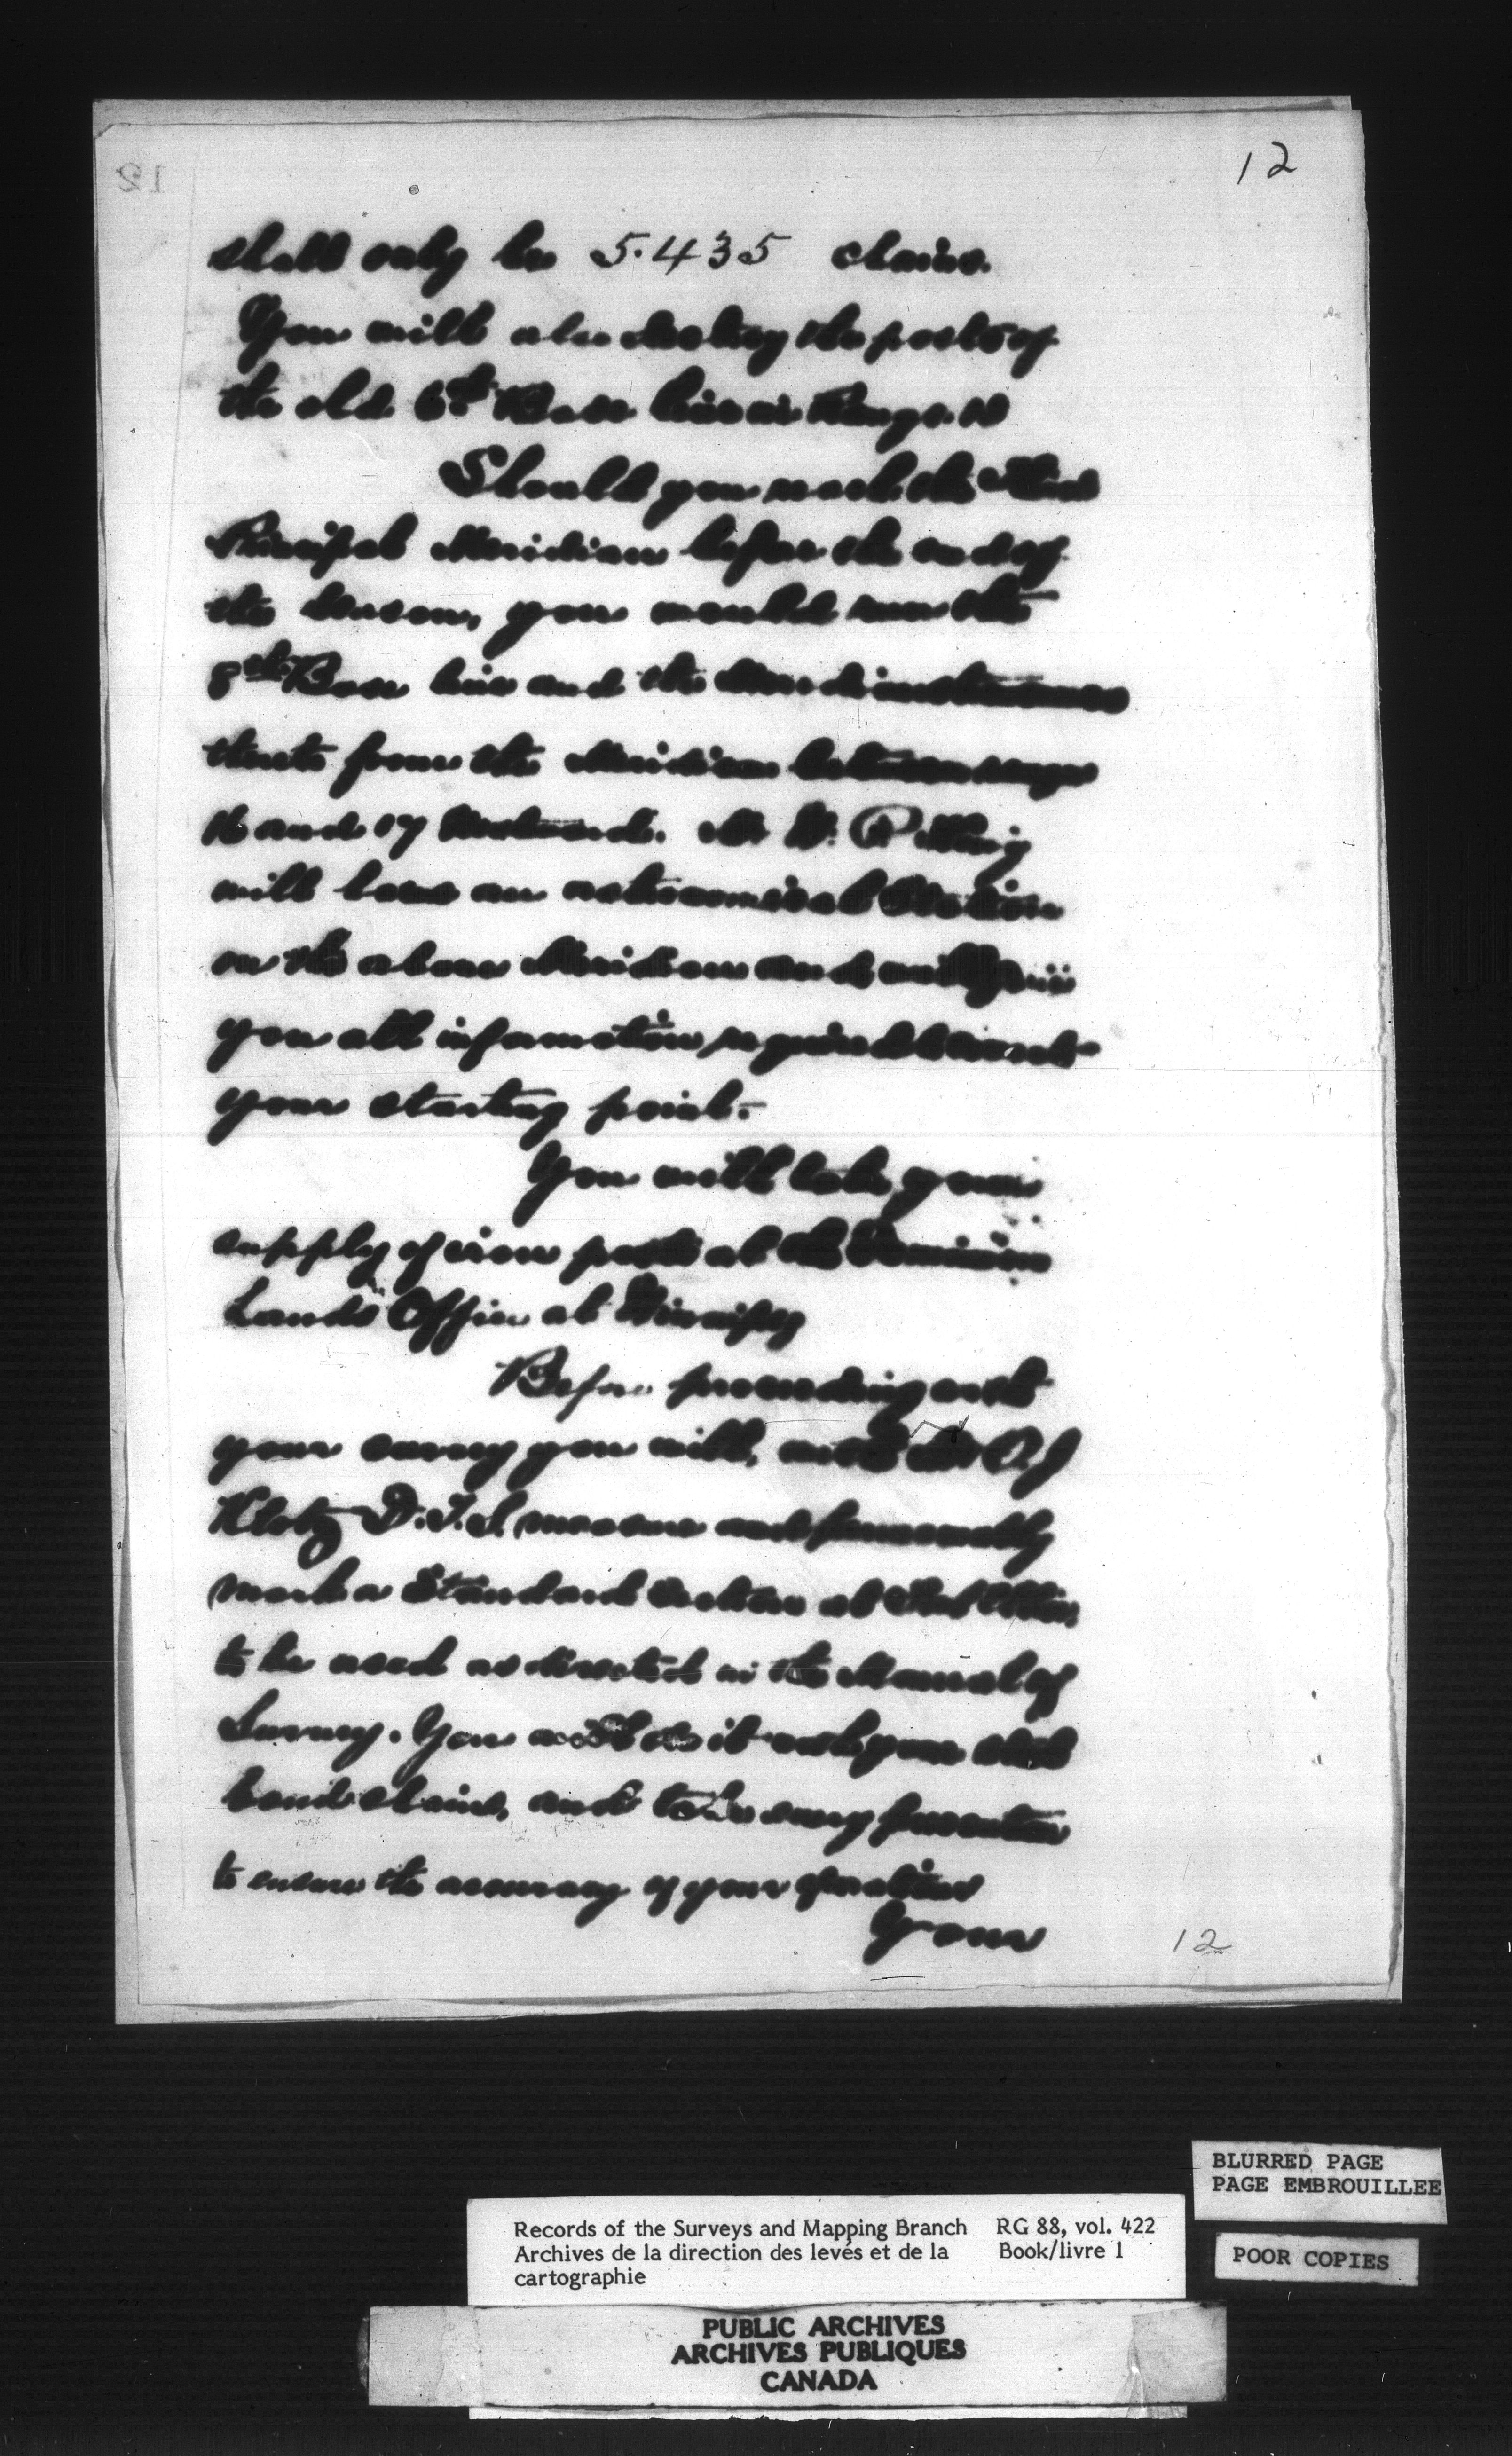 12
shall only be 5.435 chains.
You will also destroy the posts of
the old 6th Base line in Range 10
Should you reach the Third
Principal Meridian before the end of
the season, you would run the
8th Base line and the
thereto from the Meridian between ranges
16 and 17 Westward. Mr W. F. King
will have an astronomical Station
on the above Meridian and will give
you all information required about
your starting point.
You will take your
supply of iron posts at the Dominion
Lands Office at Winnipeg
Before proceeding with
your survey you will, with Mr O. J
Klotz D.T.S. measure and permanently
mark a Standard at Fort Ellice,
to be used as directed in the Manual of
Survey. You will do it with your steel
band chains, and take every precaution
to ensure the accuracy of your operations
Your
12
BLURRED PAGE
PAGE EMBROUILLEE
Records of the Surveys and Mapping Branch RG 88, vol. 422
Archives de la direction des levés et de la Book/livre 1
cartographie
POOR COPIES
PUBLIC ARCHIVES
ARCHIVES PUBLIQUES
CANADA